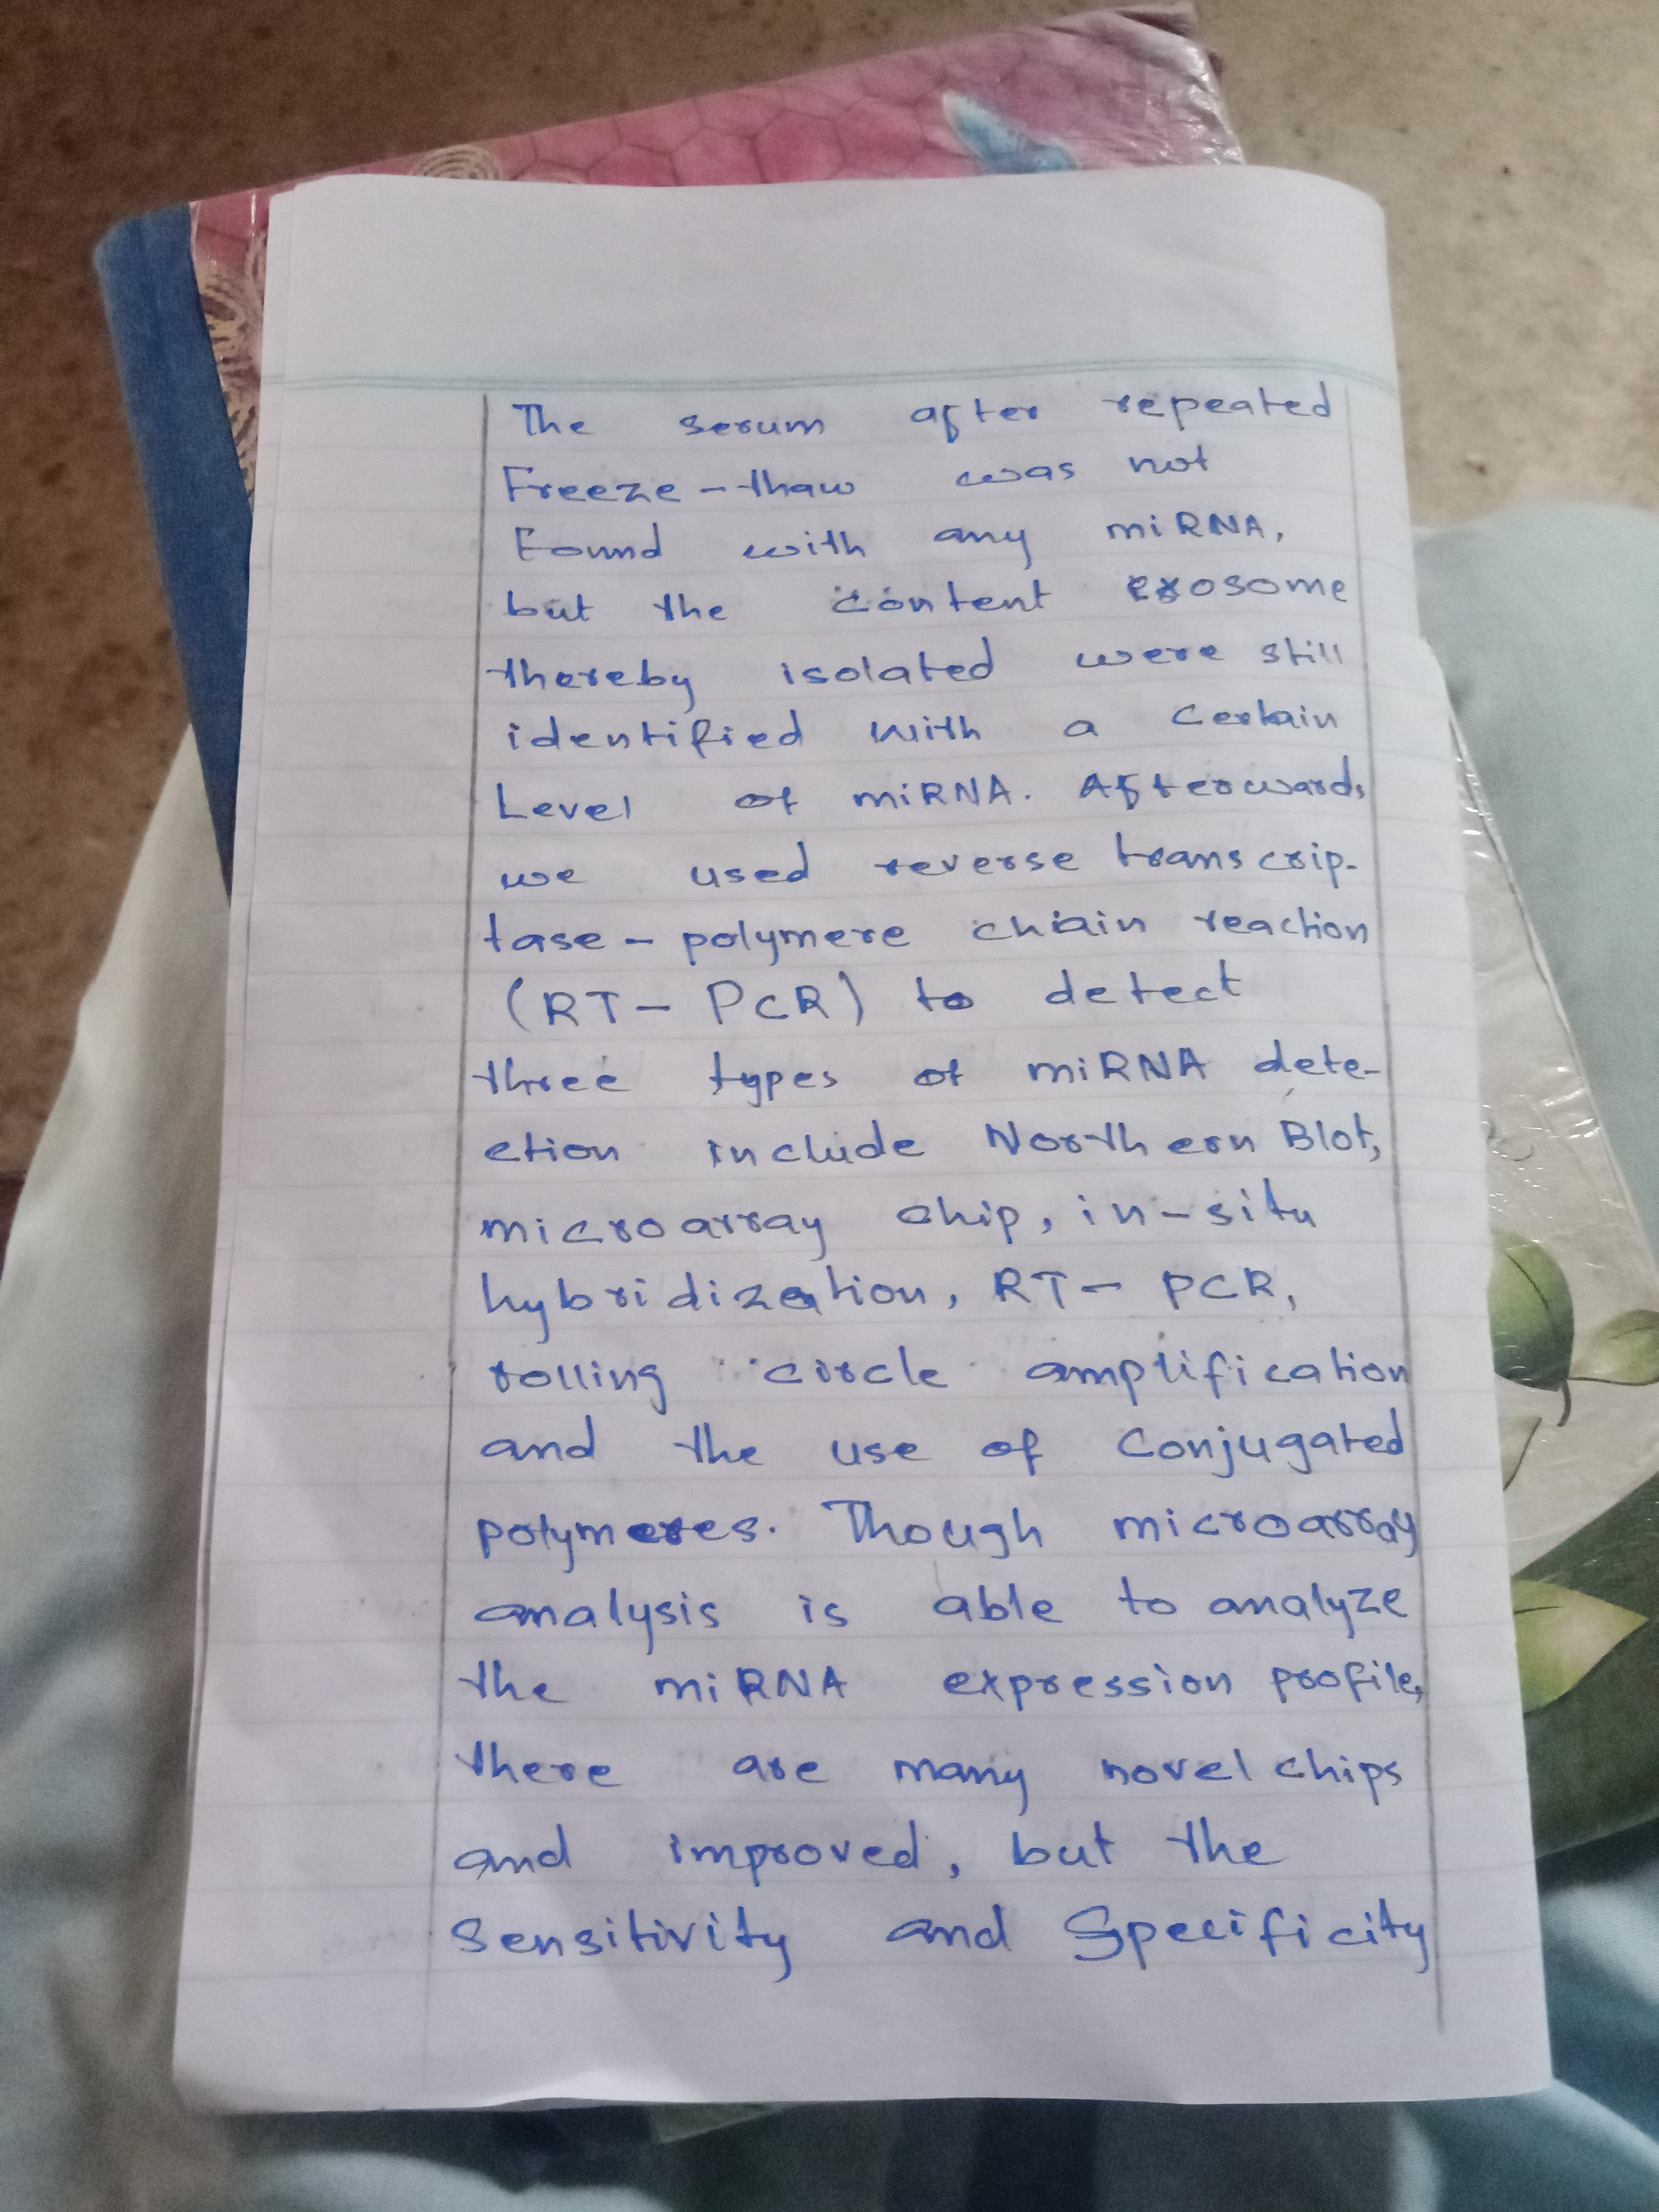 The serum after repeated
Freeze-thaw was not
Found with any miRNA,
but the content exosome
thereby isolated were still
identified with a certain
Level of miRNA. Afterwards,
we used reverse transcrip-
tase - polymere chain reaction
(RT- PCR) to detect
three types of miRNA dete-
ction include Northern Blot,
microarray chip, in-situ
hybridization, RT- PCR,
rolling circle amplification
and the use of Conjugated
polymeres. Though microarray
analysis is able to analyze
the miRNA expression profile,
there are many novel chips
and improved, but the
Sensitivity and Specificity